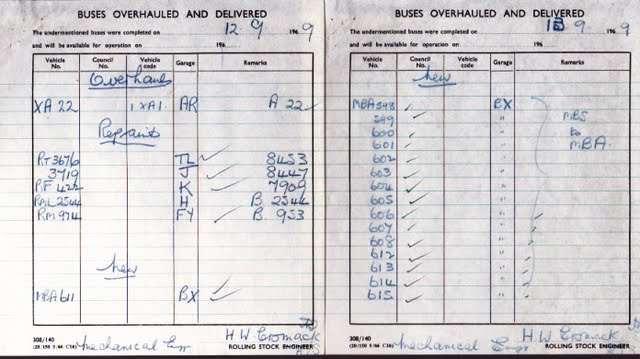 BUSES OVERHAULED AND DELIVERED
The undermentioned buses were completed on 12 9 1969
and will be available for operation on 196
Vehicle No. Council No. Vehicle code Garage Remarks
Overhauls
XA 22 1XA1. AR A 22
Repaints
RT3676 TL 8453
3719 J 8447
RF 422 K 7909
RML2544 H B. 2544
RM 974 FY B. 953
New
MBA611 BX
308/140
Mechanical Engr H W Cromack
ROLLING STOCK ENGINEER
BUSES OVERHAULED AND DELIVERED
The undermentioned buses were completed on 13 9 1969
and will be available for operation on 196
Vehicle No. Council No. Vehicle code Garage Remarks
New
MBA598 BX
599 " MBS
600 " to
601 " MBA.
602 "
603 "
604 "
605 "
606 "
607 "
608 "
612 "
613 "
614 "
615 "
308/140
Mechanical Engr H W Cromack
ROLLING STOCK ENGINEER